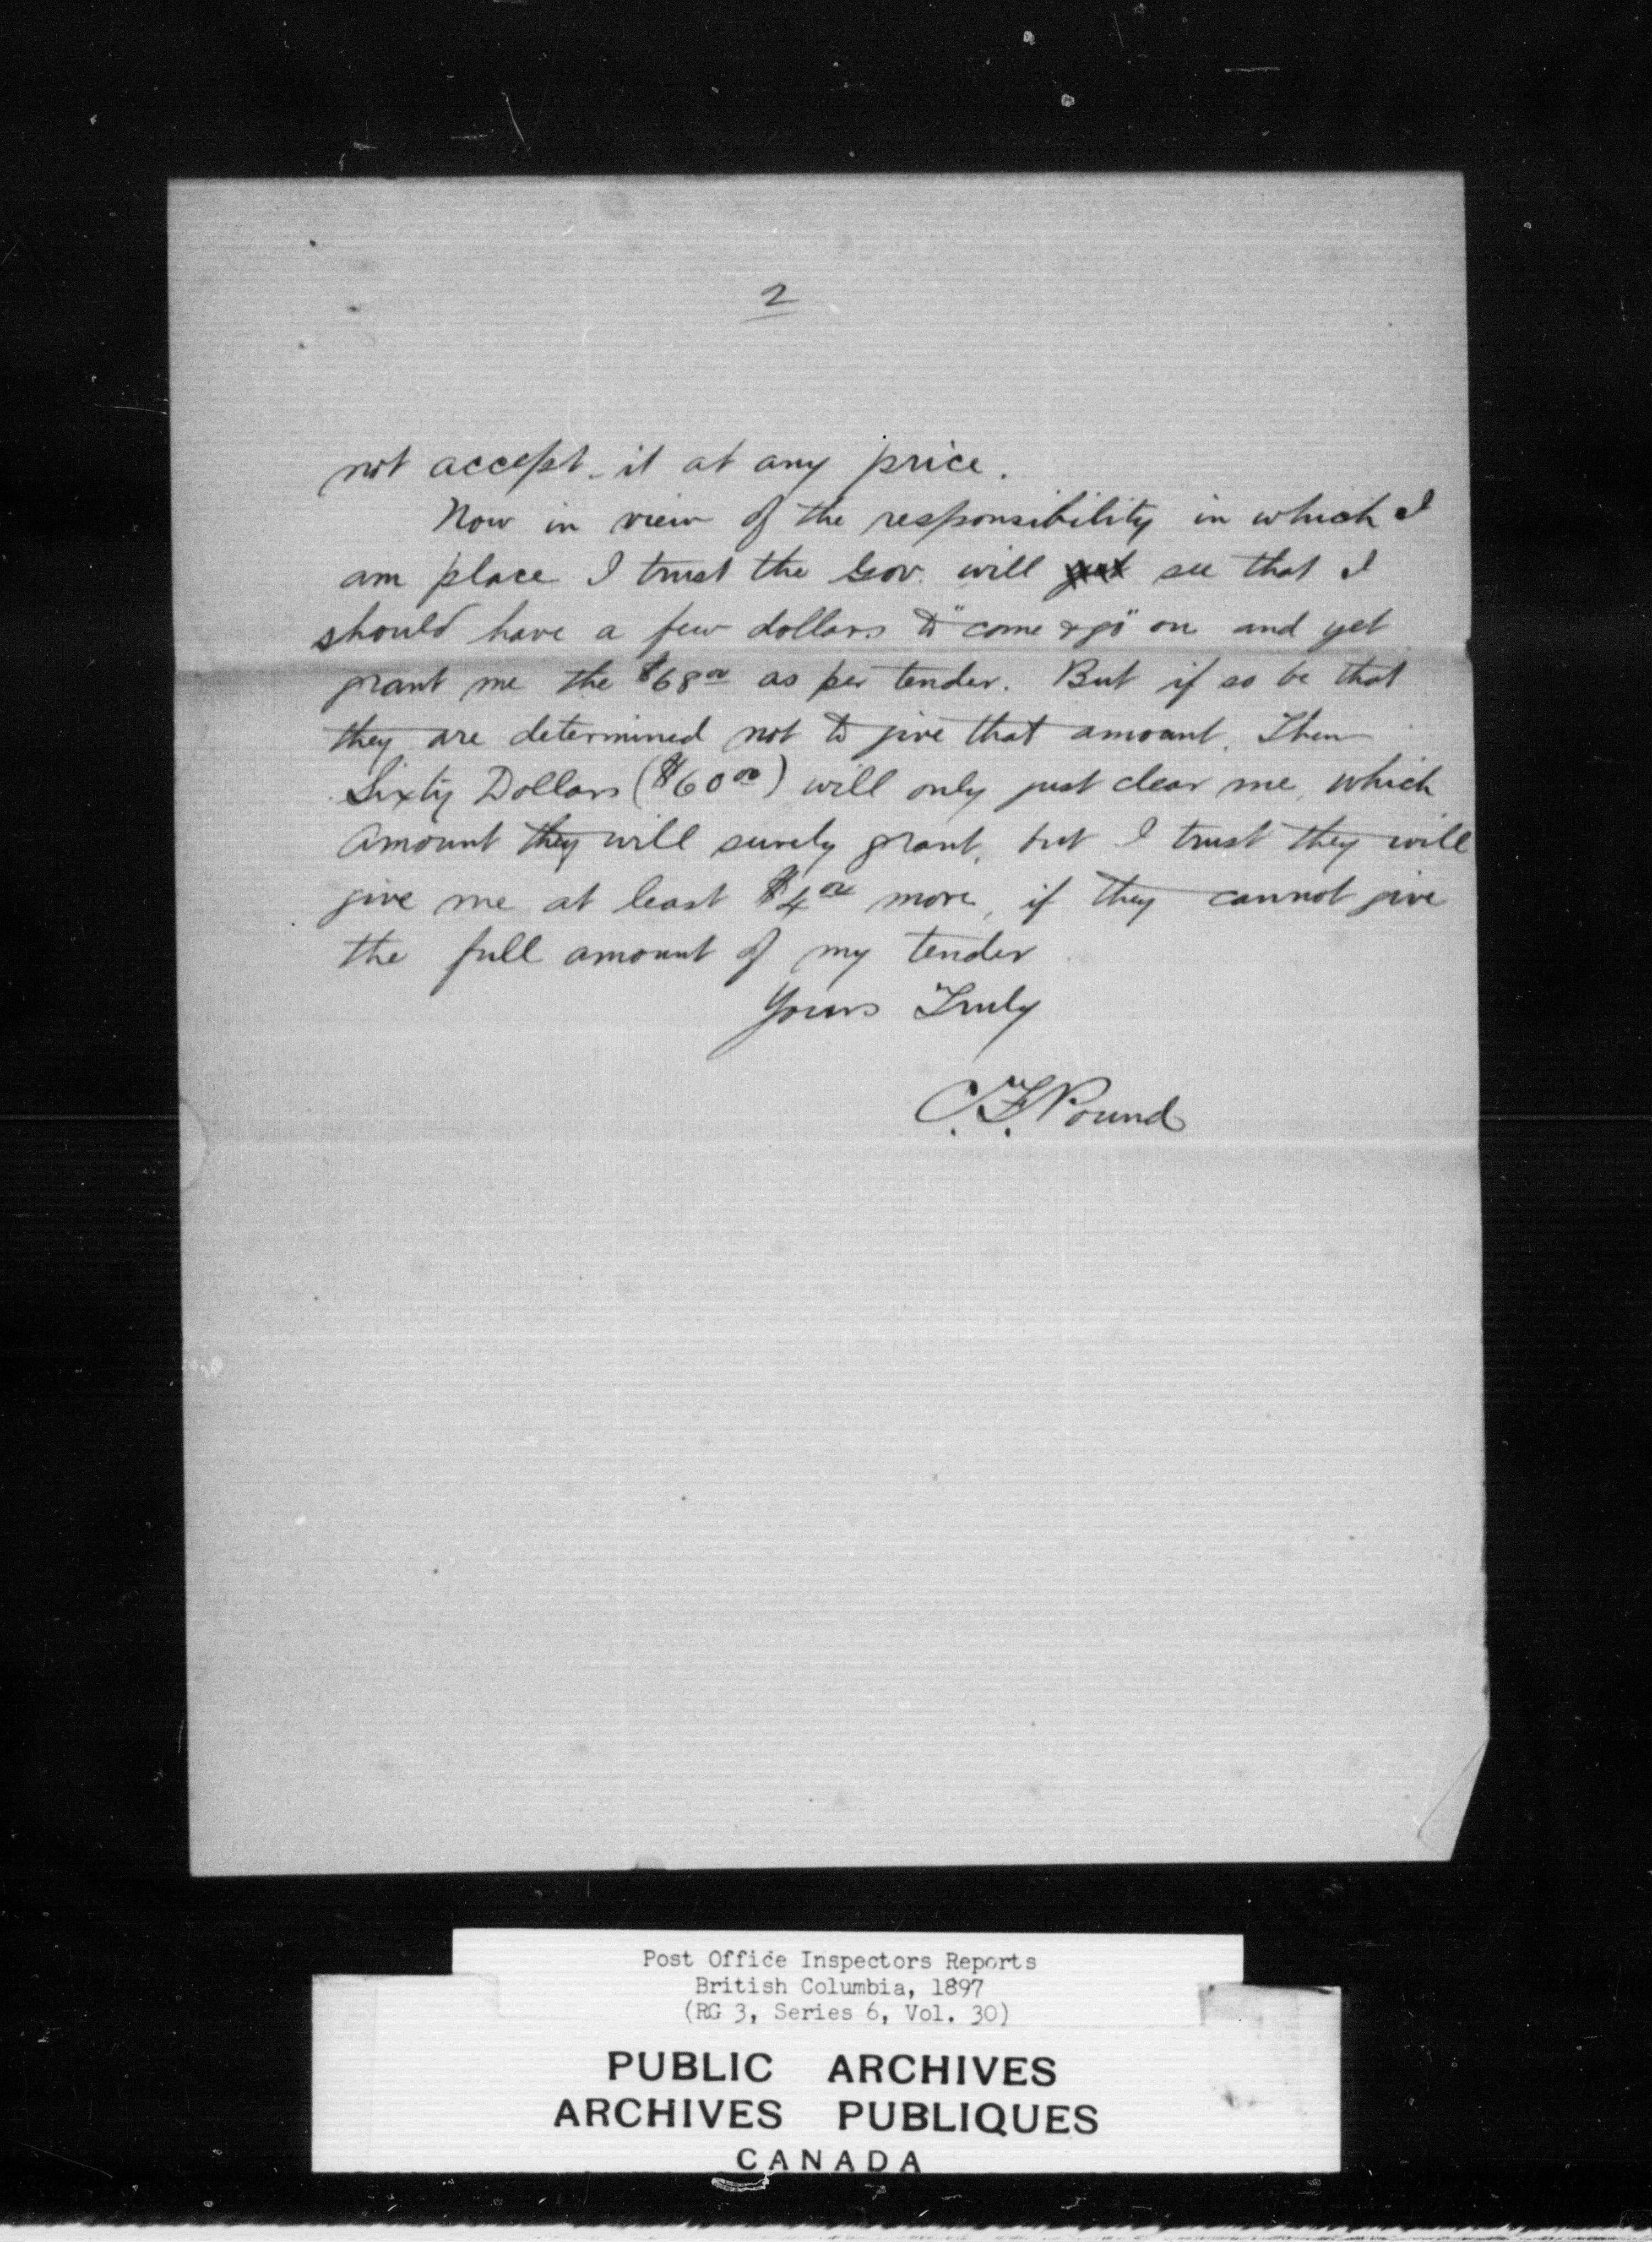 2
not accept it at any price.
Now in view of the responsibility in which I
am place I trust the Gov. will see that I
should have a few dollars to "come & go" on and yet
grant me the $68.00 as per tender. But if so be that
they are determined not to give that amount. Then
Sixty Dollars ($60.00) will only just clear me, which
amount they will surely grant, but I trust they will
give me at least $4.00 more, if they cannot give
the full amount of my tender
Yours Truly
C. F. Pound
Post Office Inspectors Reports
British Columbia, 1897
(RG 3, Series 6, Vol. 30)
PUBLIC ARCHIVES
ARCHIVES PUBLIQUES
CANADA